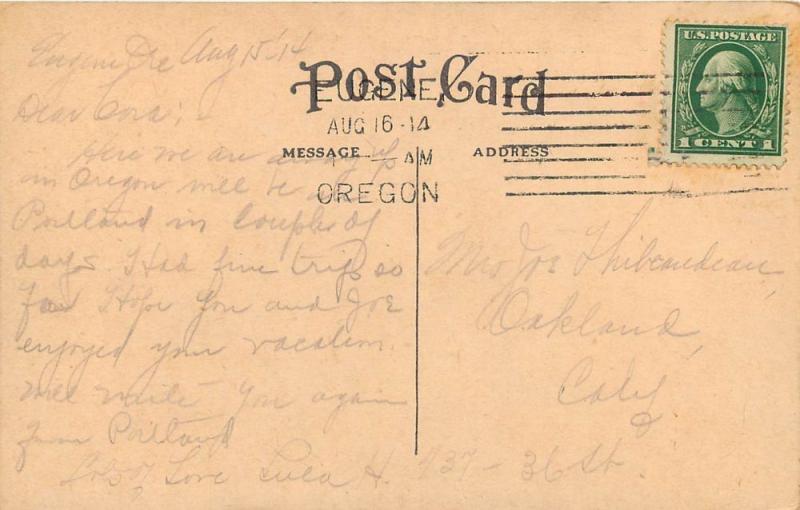 Eugene Ore Aug 15 '14
Dear Cora;
Here we are away up
in Oregon will be in
Portland in couple of
days. Had fine trip so
far Hope You and Joe
enjoyed your vacation.
Will write You again
from Portland
Lots of Love Lula H.
Post Card
EUGENE,
AUG 16-14
AM
OREGON
MESSAGE
ADDRESS
U.S. POSTAGE
1 CENT 1
Mrs Joe Thibeaudeau,
Oakland,
Calif
737 - 36 St.